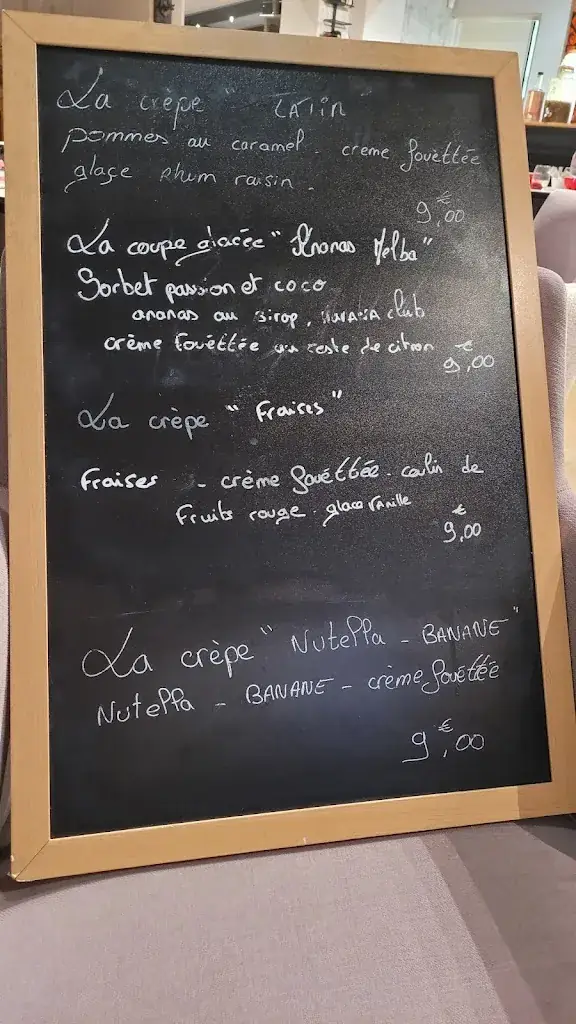 La crèpe " TATIN
pommes au caramel - creme fouèttée
glaçe rhum raisin -
9€,00
La coupe glacée "Ananas Melba"
Sorbet passion et coco
ananas au sirop, HAVANA club
crème fouéttée au zeste de citron
9€,00
La crèpe "Fraises"
Fraises - crème fouéttée - coulin de
Fruits rouge - glace vanille
9€,00
La crèpe "NuteLLa - BANANE"
NuteLLa - BANANE - crème fouéttée
9€,00